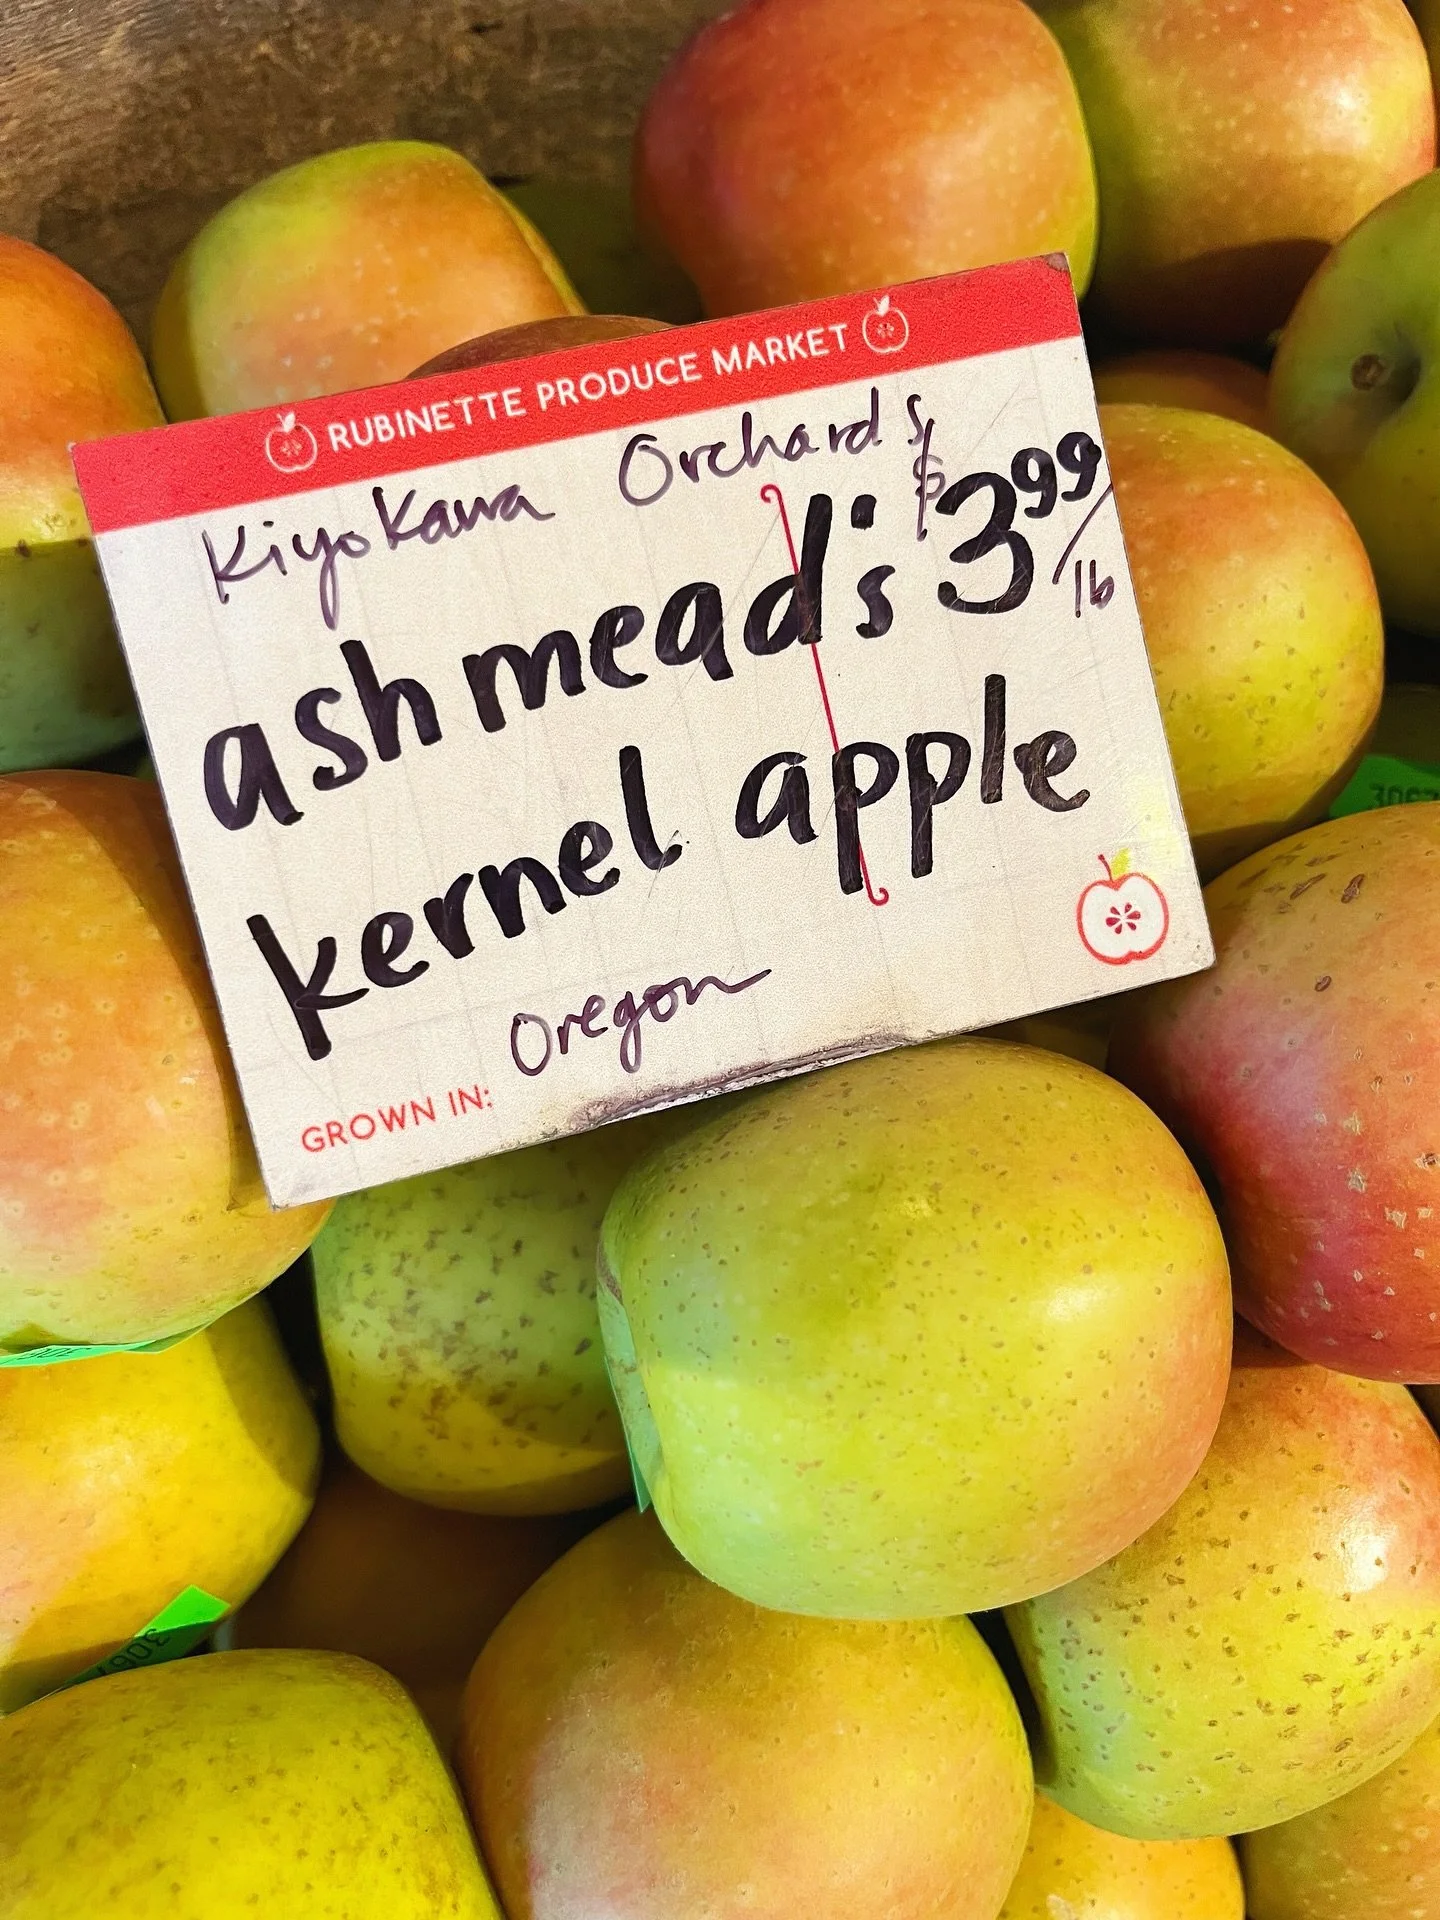 RUBINETTE PRODUCE MARKET
Kiyokawa Orchards
ashmead's $3.99/lb
kernel apple
Oregon
GROWN IN:
3067